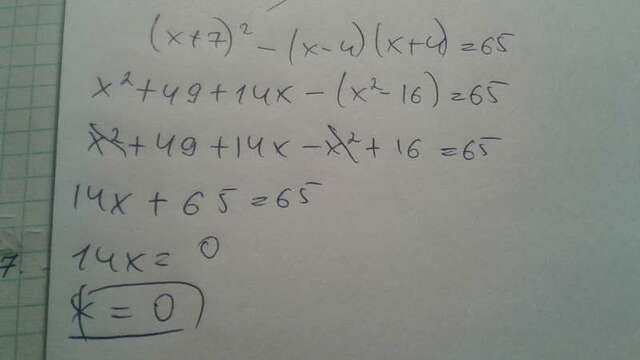 (x+7)² - (x-4)(x+4) = 65
x² + 49 + 14x - (x² - 16) = 65
x² + 49 + 14x - x² + 16 = 65
14x + 65 = 65
14x = 0
7.
x = 0